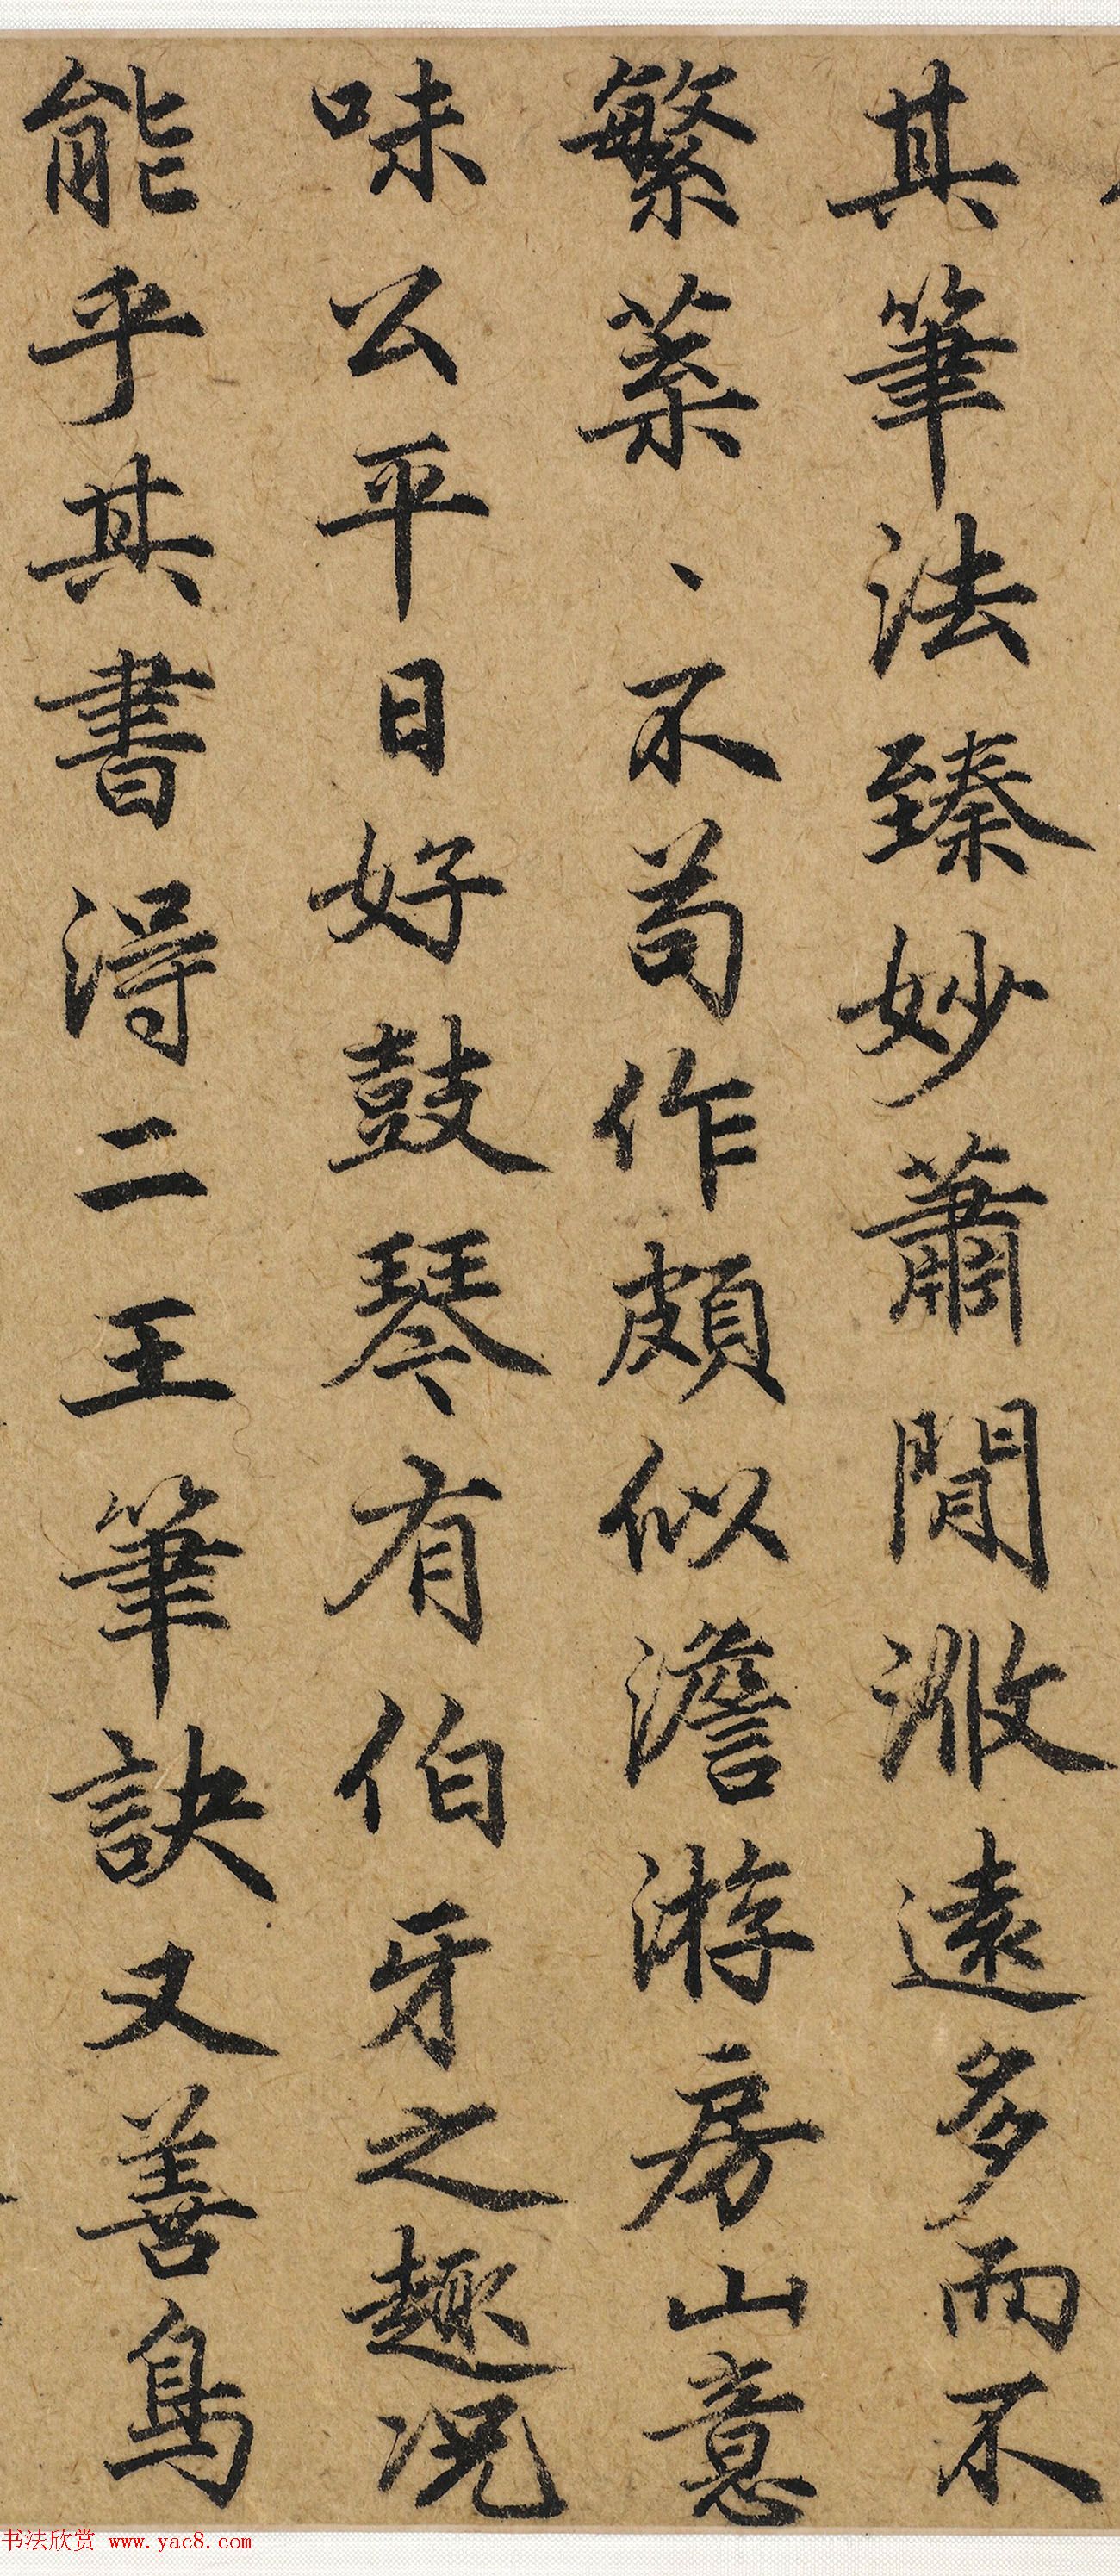 其筆法臻妙蕭閒遠多而不
繁葉、不苟作頗似澹游房山意
味公平日好鼓琴有伯牙之趣況
能乎其書得二王筆訣又善鳥
书法欣赏 www.yac8.com